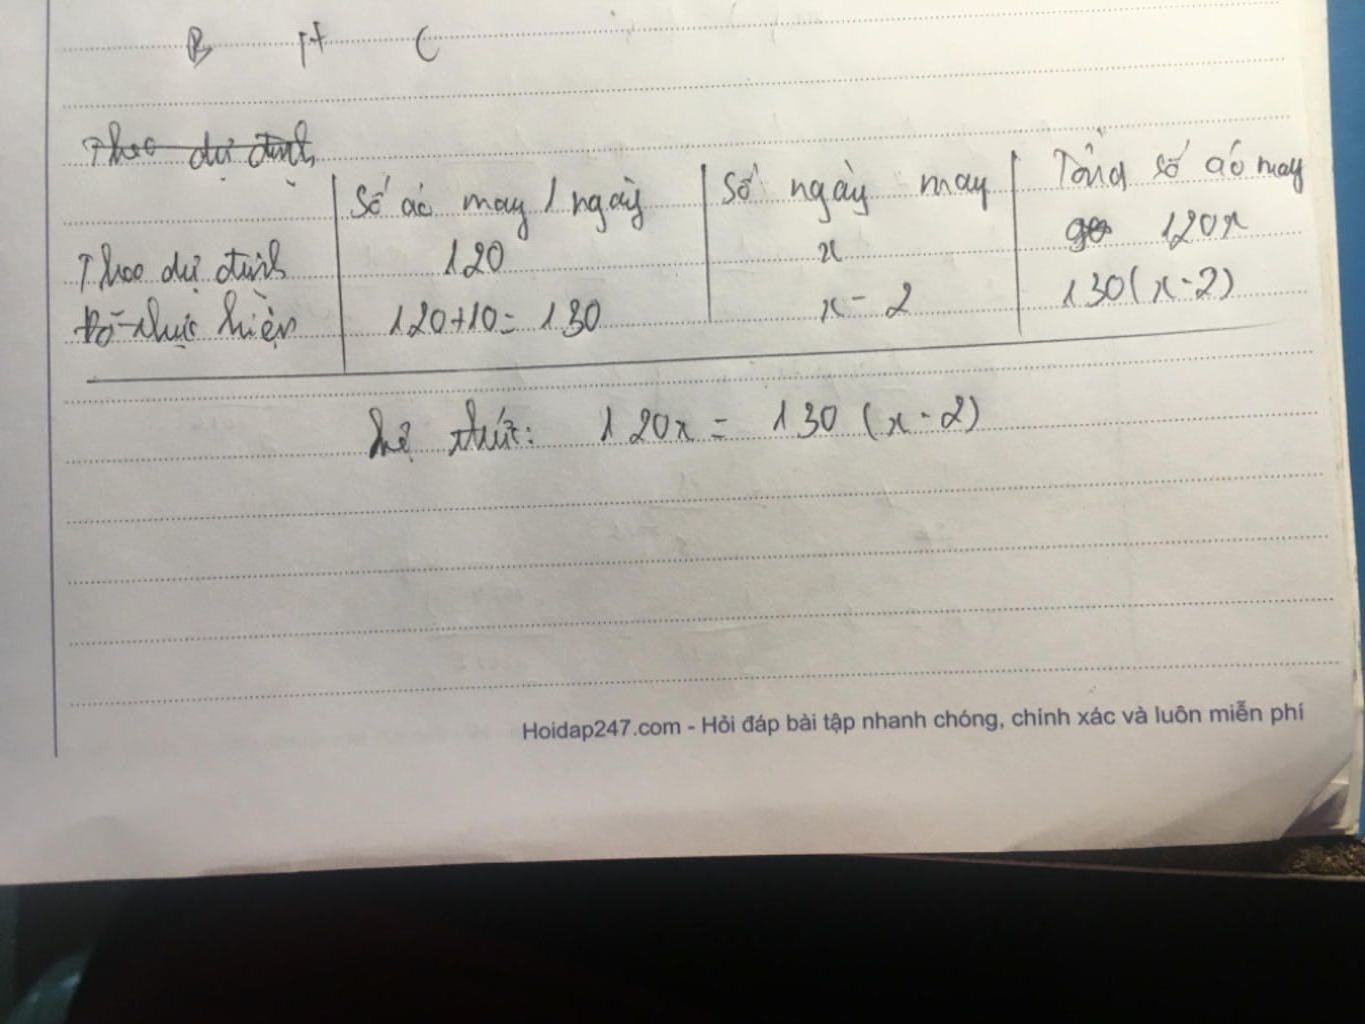 B H C
Theo dự định
Số áo may 1 ngày Số ngày may Tổng số áo may
Theo dự định 120 x 120x
thực hiện 120+10= 130 x-2 130(x-2)
hệ thức: 120x = 130 (x-2)
Hoidap247.com - Hỏi đáp bài tập nhanh chóng, chính xác và luôn miễn phí